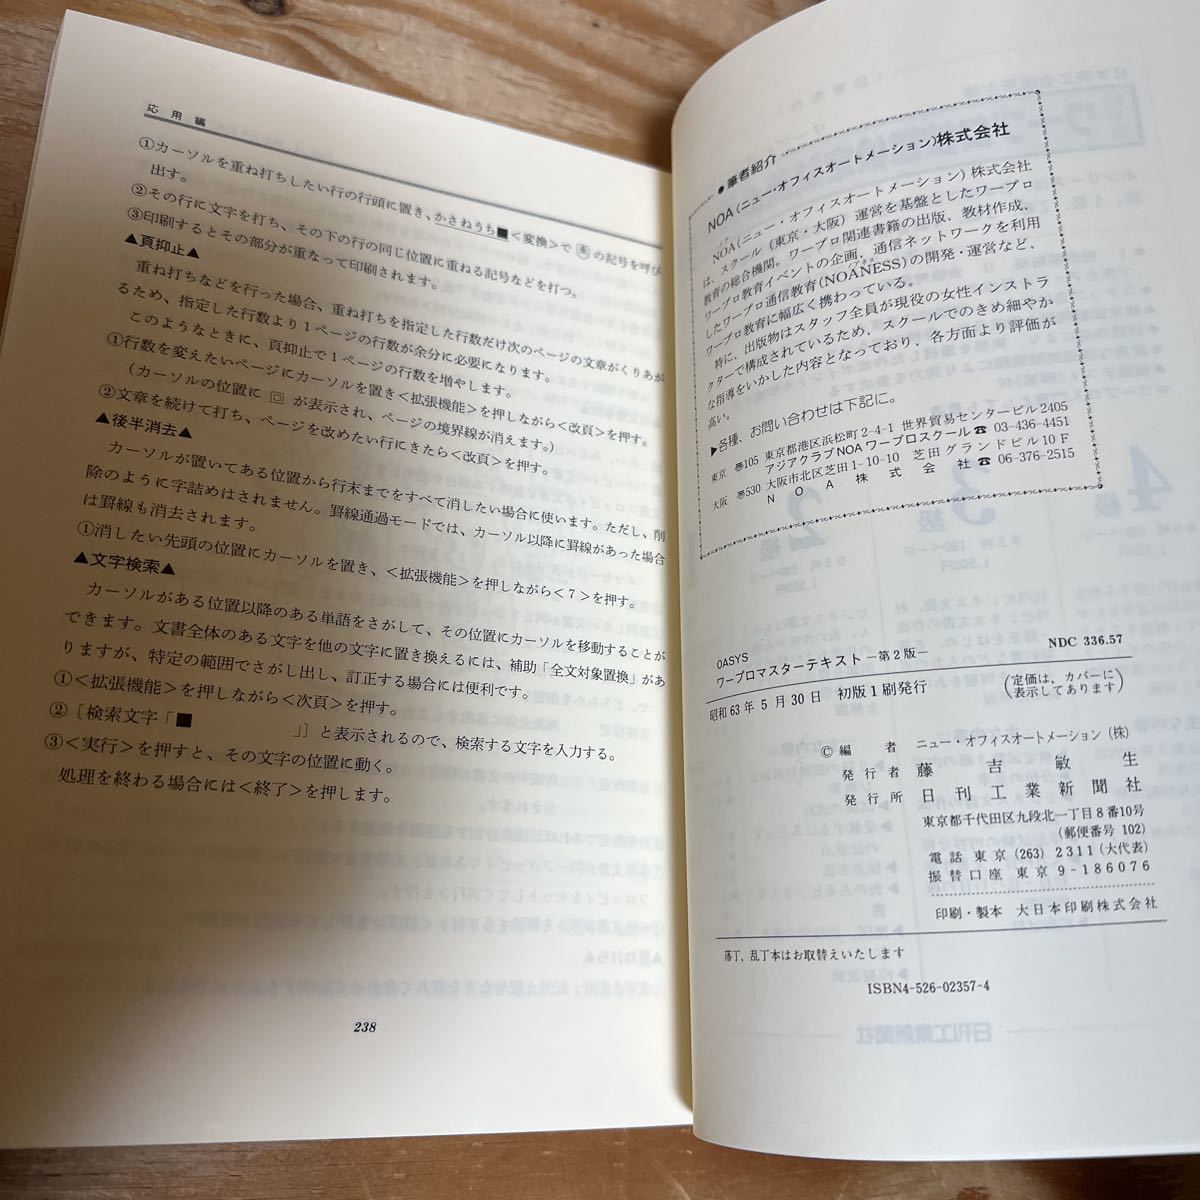 応用編
①カーソルを重ね打ちしたい行の行頭に置き、かさねうち■<変換>で の記号を呼び
出す。
②その行に文字を打ち、その下の行の同じ位置に重ねる記号などを打つ。
③印刷するとその部分が重なって印刷されます。
▲頁抑止▲
重ね打ちなどを行った場合、重ね打ちを指定した行数だけ次のページの文章がくりあが
るため、指定した行数より1ページの行数が余分に必要になります。
このようなときに、頁抑止で1ページの行数を増やします。
①行数を変えたいページにカーソルを置き<拡張機能>を押しながら<改頁>を押す。
(カーソルの位置に 回 が表示され、ページの境界線が消えます。)
②文章を続けて打ち、ページを改めたい行にきたら<改頁>を押す。
▲後半消去▲
カーソルが置いてある位置から行末までをすべて消したい場合に使います。ただし、削
除のように字詰めはされません。罫線通過モードでは、カーソル以降に罫線があった場合
は罫線も消去されます。
①消したい先頭の位置にカーソルを置き、<拡張機能>を押しながら<7>を押す。
▲文字検索▲
カーソルがある位置以降のある単語をさがして、その位置にカーソルを移動することが
できます。文書全体のある文字を他の文字に置き換えるには、補助「全文対象置換」があ
りますが、特定の範囲でさがし出し、訂正する場合には便利です。
①<拡張機能>を押しながら<次頁>を押す。
②[検索文字「■ 」]と表示されるので、検索する文字を入力する。
③<実行>を押すと、その文字の位置に動く。
処理を終わる場合には<終了>を押します。
238
●筆者紹介
NOA(ニュー・オフィスオートメーション)株式会社
NOA(ニュー・オフィスオートメーション)株式会社
は、スクール(東京・大阪)運営を基盤としたワープロ
教育の総合機関。ワープロ関連書籍の出版、教材作成、
ワープロ教育イベントの企画、通信ネットワークを利用
したワープロ通信教育(NOANESS)の開発・運営など、
ワープロ教育に幅広く携わっている。
特に、出版物はスタッフ全員が現役の女性インストラ
クターで構成されているため、スクールでのきめ細やか
な指導をいかした内容となっており、各方面より評価が
高い。
▶各種、お問い合わせは下記に。
東京 〒105 東京都港区浜松町2-4-1 世界貿易センタービル2405
アジアクラブNOAワープロスクール☎03-436-4451
大阪 〒530 大阪市北区芝田1-10-10 芝田グランドビル10F
NOA株式会社☎06-376-2515
OASYS
ワープロマスターテキスト―第2版― NDC 336.57
昭和63年5月30日 初版1刷発行 (定価は、カバーに表示してあります)
©編者 ニュー・オフィスオートメーション(株)
発行者 藤吉敏生
発行所 日刊工業新聞社
東京都千代田区九段北一丁目8番10号
(郵便番号 102)
電話 東京(263)2311(大代表)
振替口座 東京9-186076
印刷・製本 大日本印刷株式会社
落丁、乱丁本はお取替えいたします
ISBN4-526-02357-4